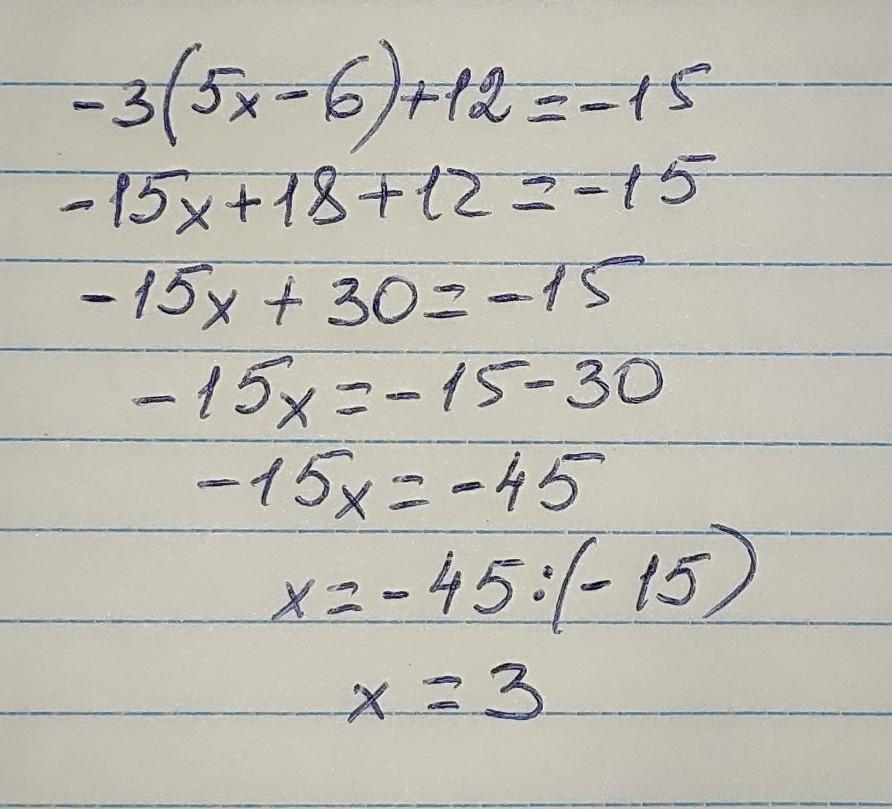 -3(5x-6)+12=-15
-15x+18+12=-15
-15x+30=-15
-15x=-15-30
-15x=-45
x=-45:(-15)
x=3